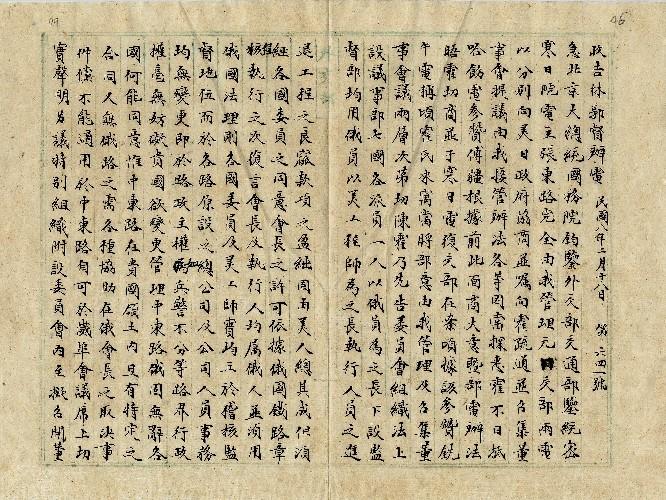 收吉林郭督辦電 民國八年二月十八日 第六四號
急北京大總統國務院鈞鑒外交部交通部鑒統密
寒日院電主張東路完全由我管理元交部兩電
以分別向美日政府協商並囑向霍疏通並召集董
事會提議由我接管辦法各等因當探悉霍不日抵
哈飭電參贊傅疆根據前此面商大意暨部電辦法
晤霍切商並于寒日電復交部在案頃據該參贊銑
午電稱頃霍氏來寓當將部意由我管理及召集董
事會議兩層次第切陳霍乃先告委員會組織法上
設議事部七國各派員一人以俄員為之長下設監
督部均用俄員以美工程師為之長執行人員之進
退工程之良窳款項之盈絀固由美人總其成但須
經各國委員之同意會長之許可依據俄國鐵路章
核執行之次復言會長及執行人均屬俄人並須用
俄國法理則各國委員及美工師實均立於稽核監
督地位而於各路原設之總公司及公司人員事務
均無變更即於路政主權 不分等路界行政
權毫無妨礙貴國欲變更管理中東路俄固無辭各
國何能同意惟中東路在貴國領土內且有特定之
合同人與俄路之需各種協助在俄會長之取決事
件儻不能適用於中東路自可於崴埠會議席上切
實聲明另議特別組織附設委員會內至擬召開董